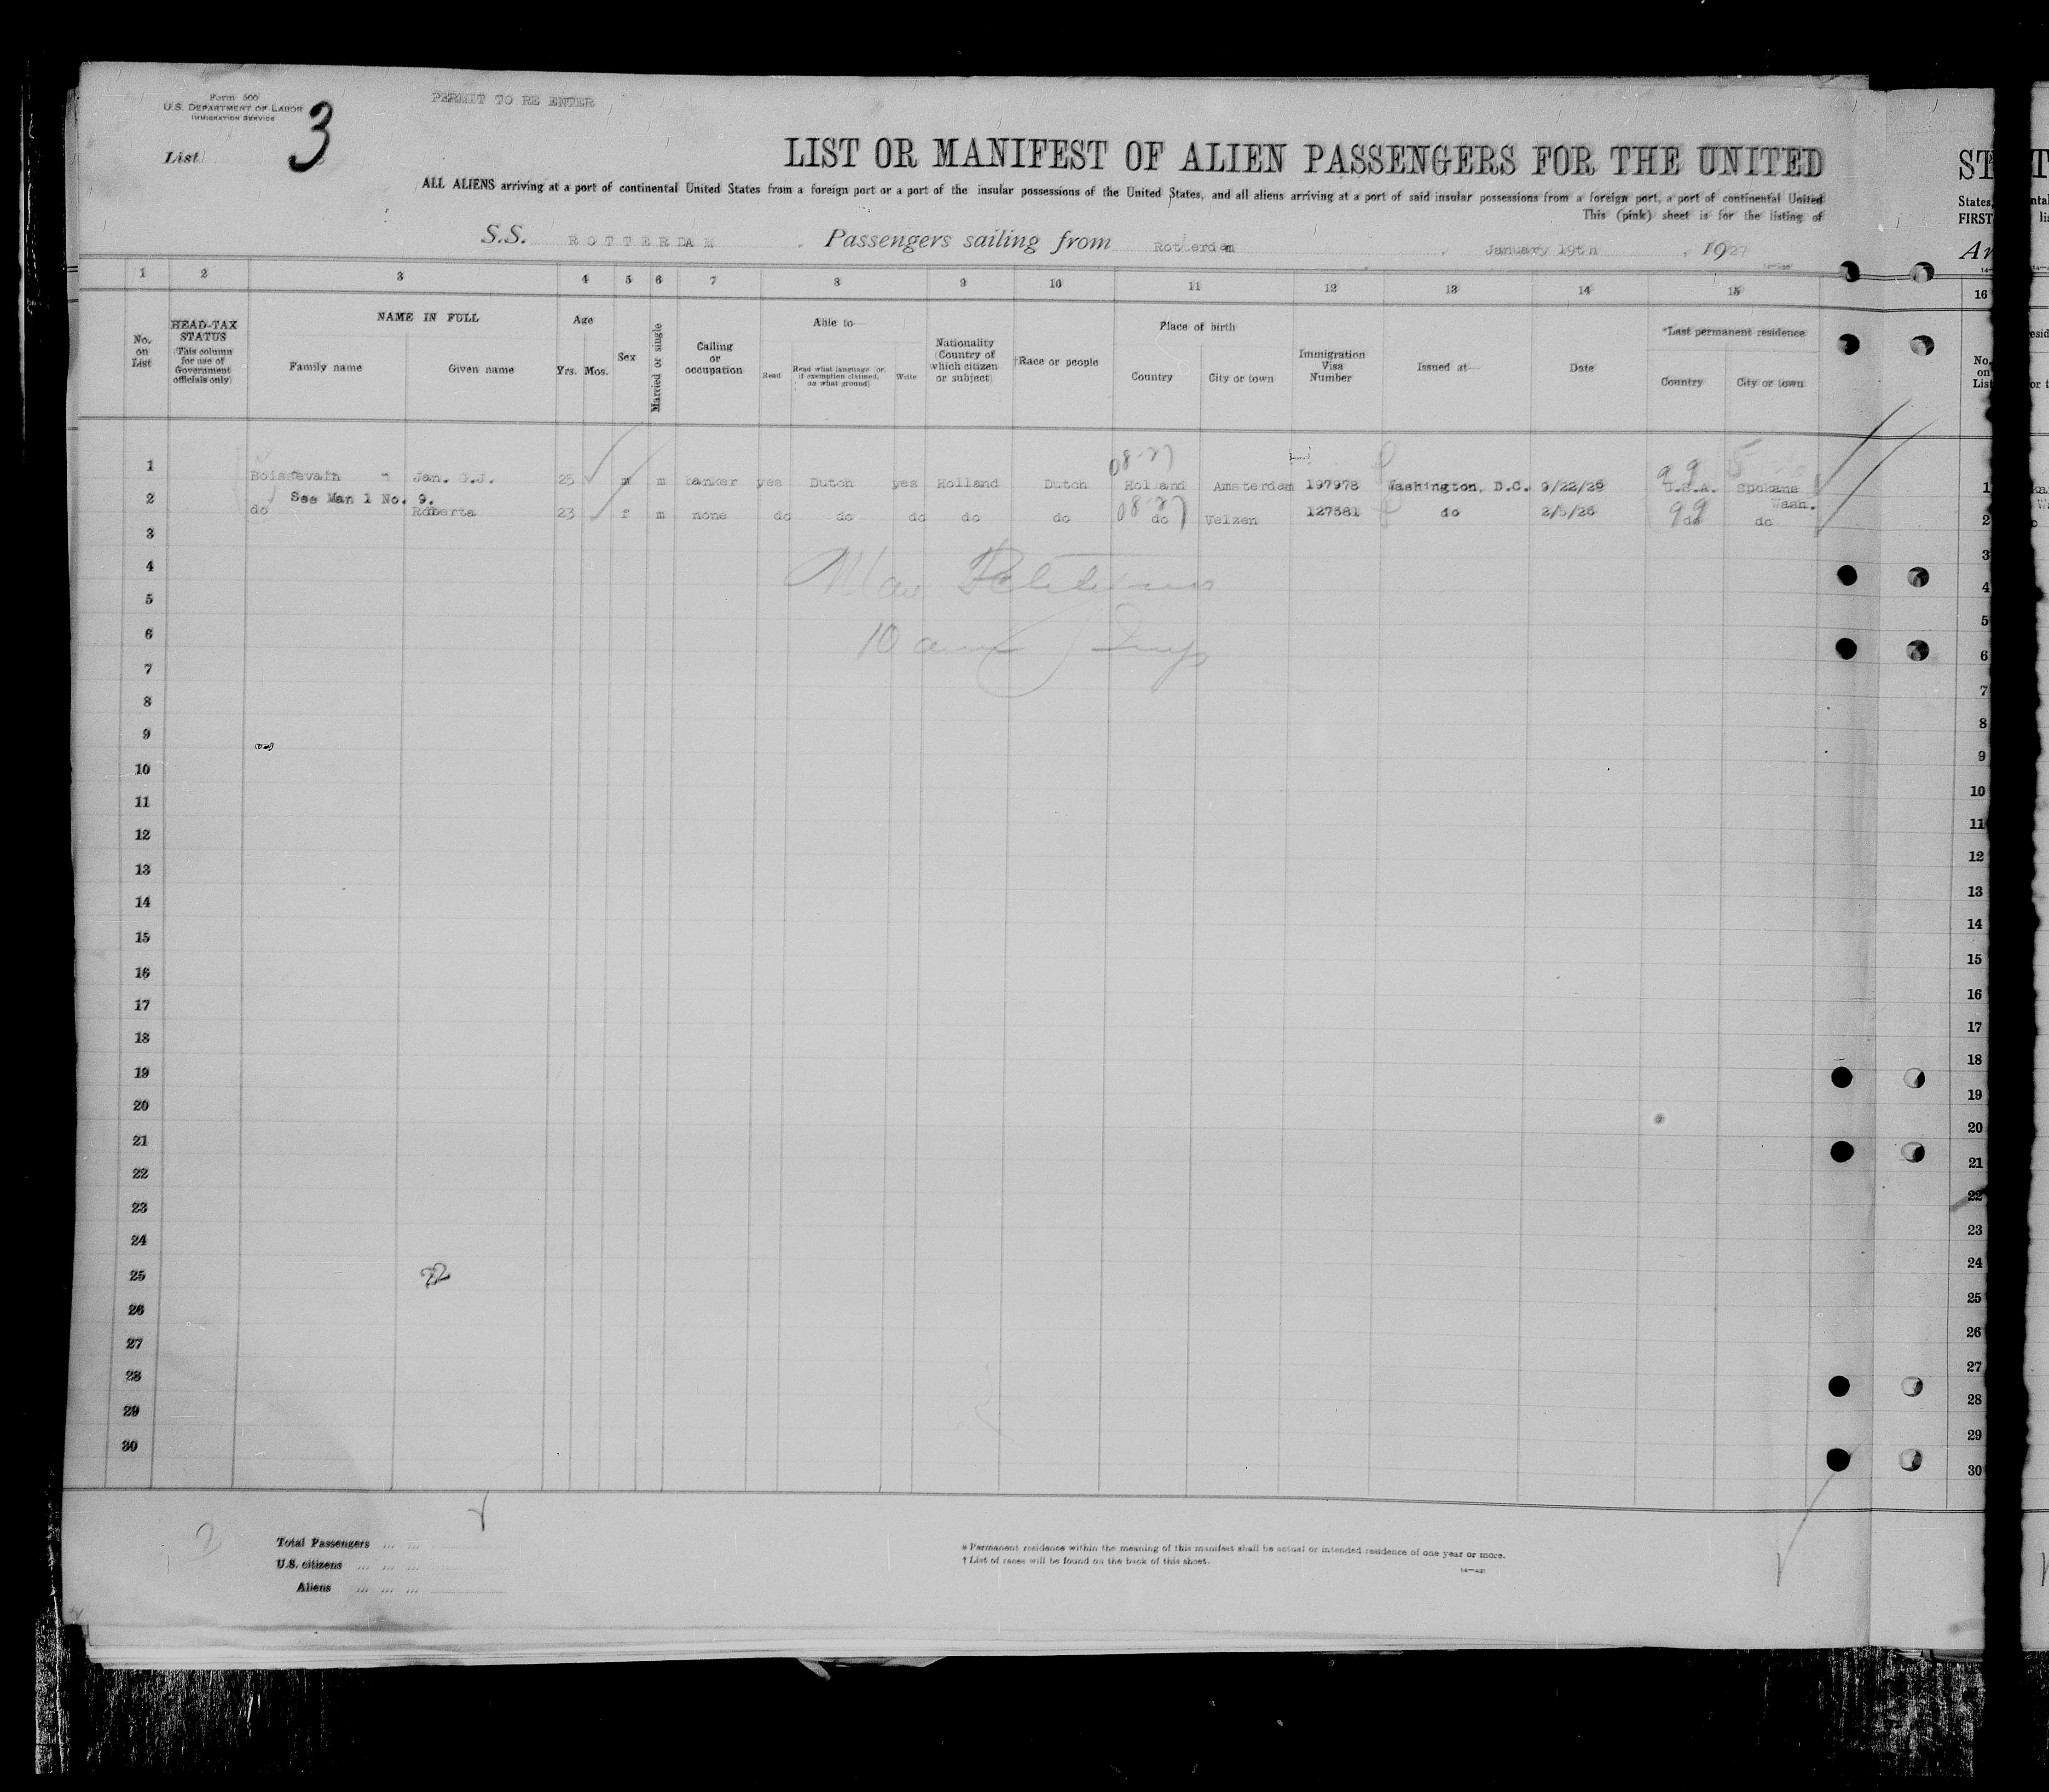 Form 500
U.S. DEPARTMENT OF LABOR
IMMIGRATION SERVICE
PERMIT TO RE ENTER
List 3
LIST OR MANIFEST OF ALIEN PASSENGERS FOR THE UNITED
ST
ALL ALIENS arriving at a port of continental United States from a foreign port or a port of the insular possessions of the United States, and all aliens arriving at a port of said insular possessions from a foreign port, a port of continental United
States,
This (pink) sheet is for the listing of
FIRST
S.S. ROTTERDAM, Passengers sailing from Rotterdam, January 19th, 1927
1 2 3 4 5 6 7 8 9 10 11 12 13 14 15 16
No. on List
HEAD-TAX STATUS (This column for use of Government officials only)
NAME IN FULL
Family name Given name
Age
Yrs. Mos.
Sex
Married or single
Calling or occupation
Able to—
Read Read what language (or, if exemption claimed, on what ground) Write
Nationality (Country of which citizen or subject)
†Race or people
Place of birth
Country City or town
Immigration Visa Number
Issued at—
Date
*Last permanent residence
Country City or town
No. on List
08-27 99
1 Boissevain Jan. G.J. 25 m m banker yes Dutch yes Holland Dutch Holland Amsterdam 197978 Washington, D.C. U.S.A. Spokane Wash. 1
See Man 1 No. 9.
08-27 99
2 do Roberta 23 f m none do do do do do do Velzen 127581 do do do 2
3 3
4 4
5 5
6 6
10 am
7 7
8 8
9 9
10 10
11 11
12 12
13 13
14 14
15 15
16 16
17 17
18 18
19 19
20 20
21 21
22 22
23 23
24 24
25 25
26 26
27 27
28 28
29 29
30 30
Total Passengers ... ...
U.S. citizens ... ... ...
Aliens ... ... ...
* Permanent residence within the meaning of this manifest shall be actual or intended residence of one year or more.
† List of races will be found on the back of this sheet.